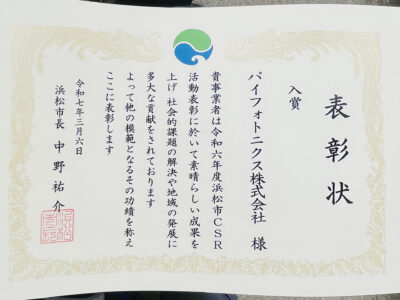 表彰状
入賞
パイフォトニクス株式会社 様
貴事業者は令和六年度浜松市CSR
活動表彰に於いて素晴らしい成果を
上げ 社会的課題の解決や地域の発展に
多大な貢献をされております
よって他の模範となるその功績を称え
ここに表彰します
令和七年三月六日
浜松市長 中野祐介